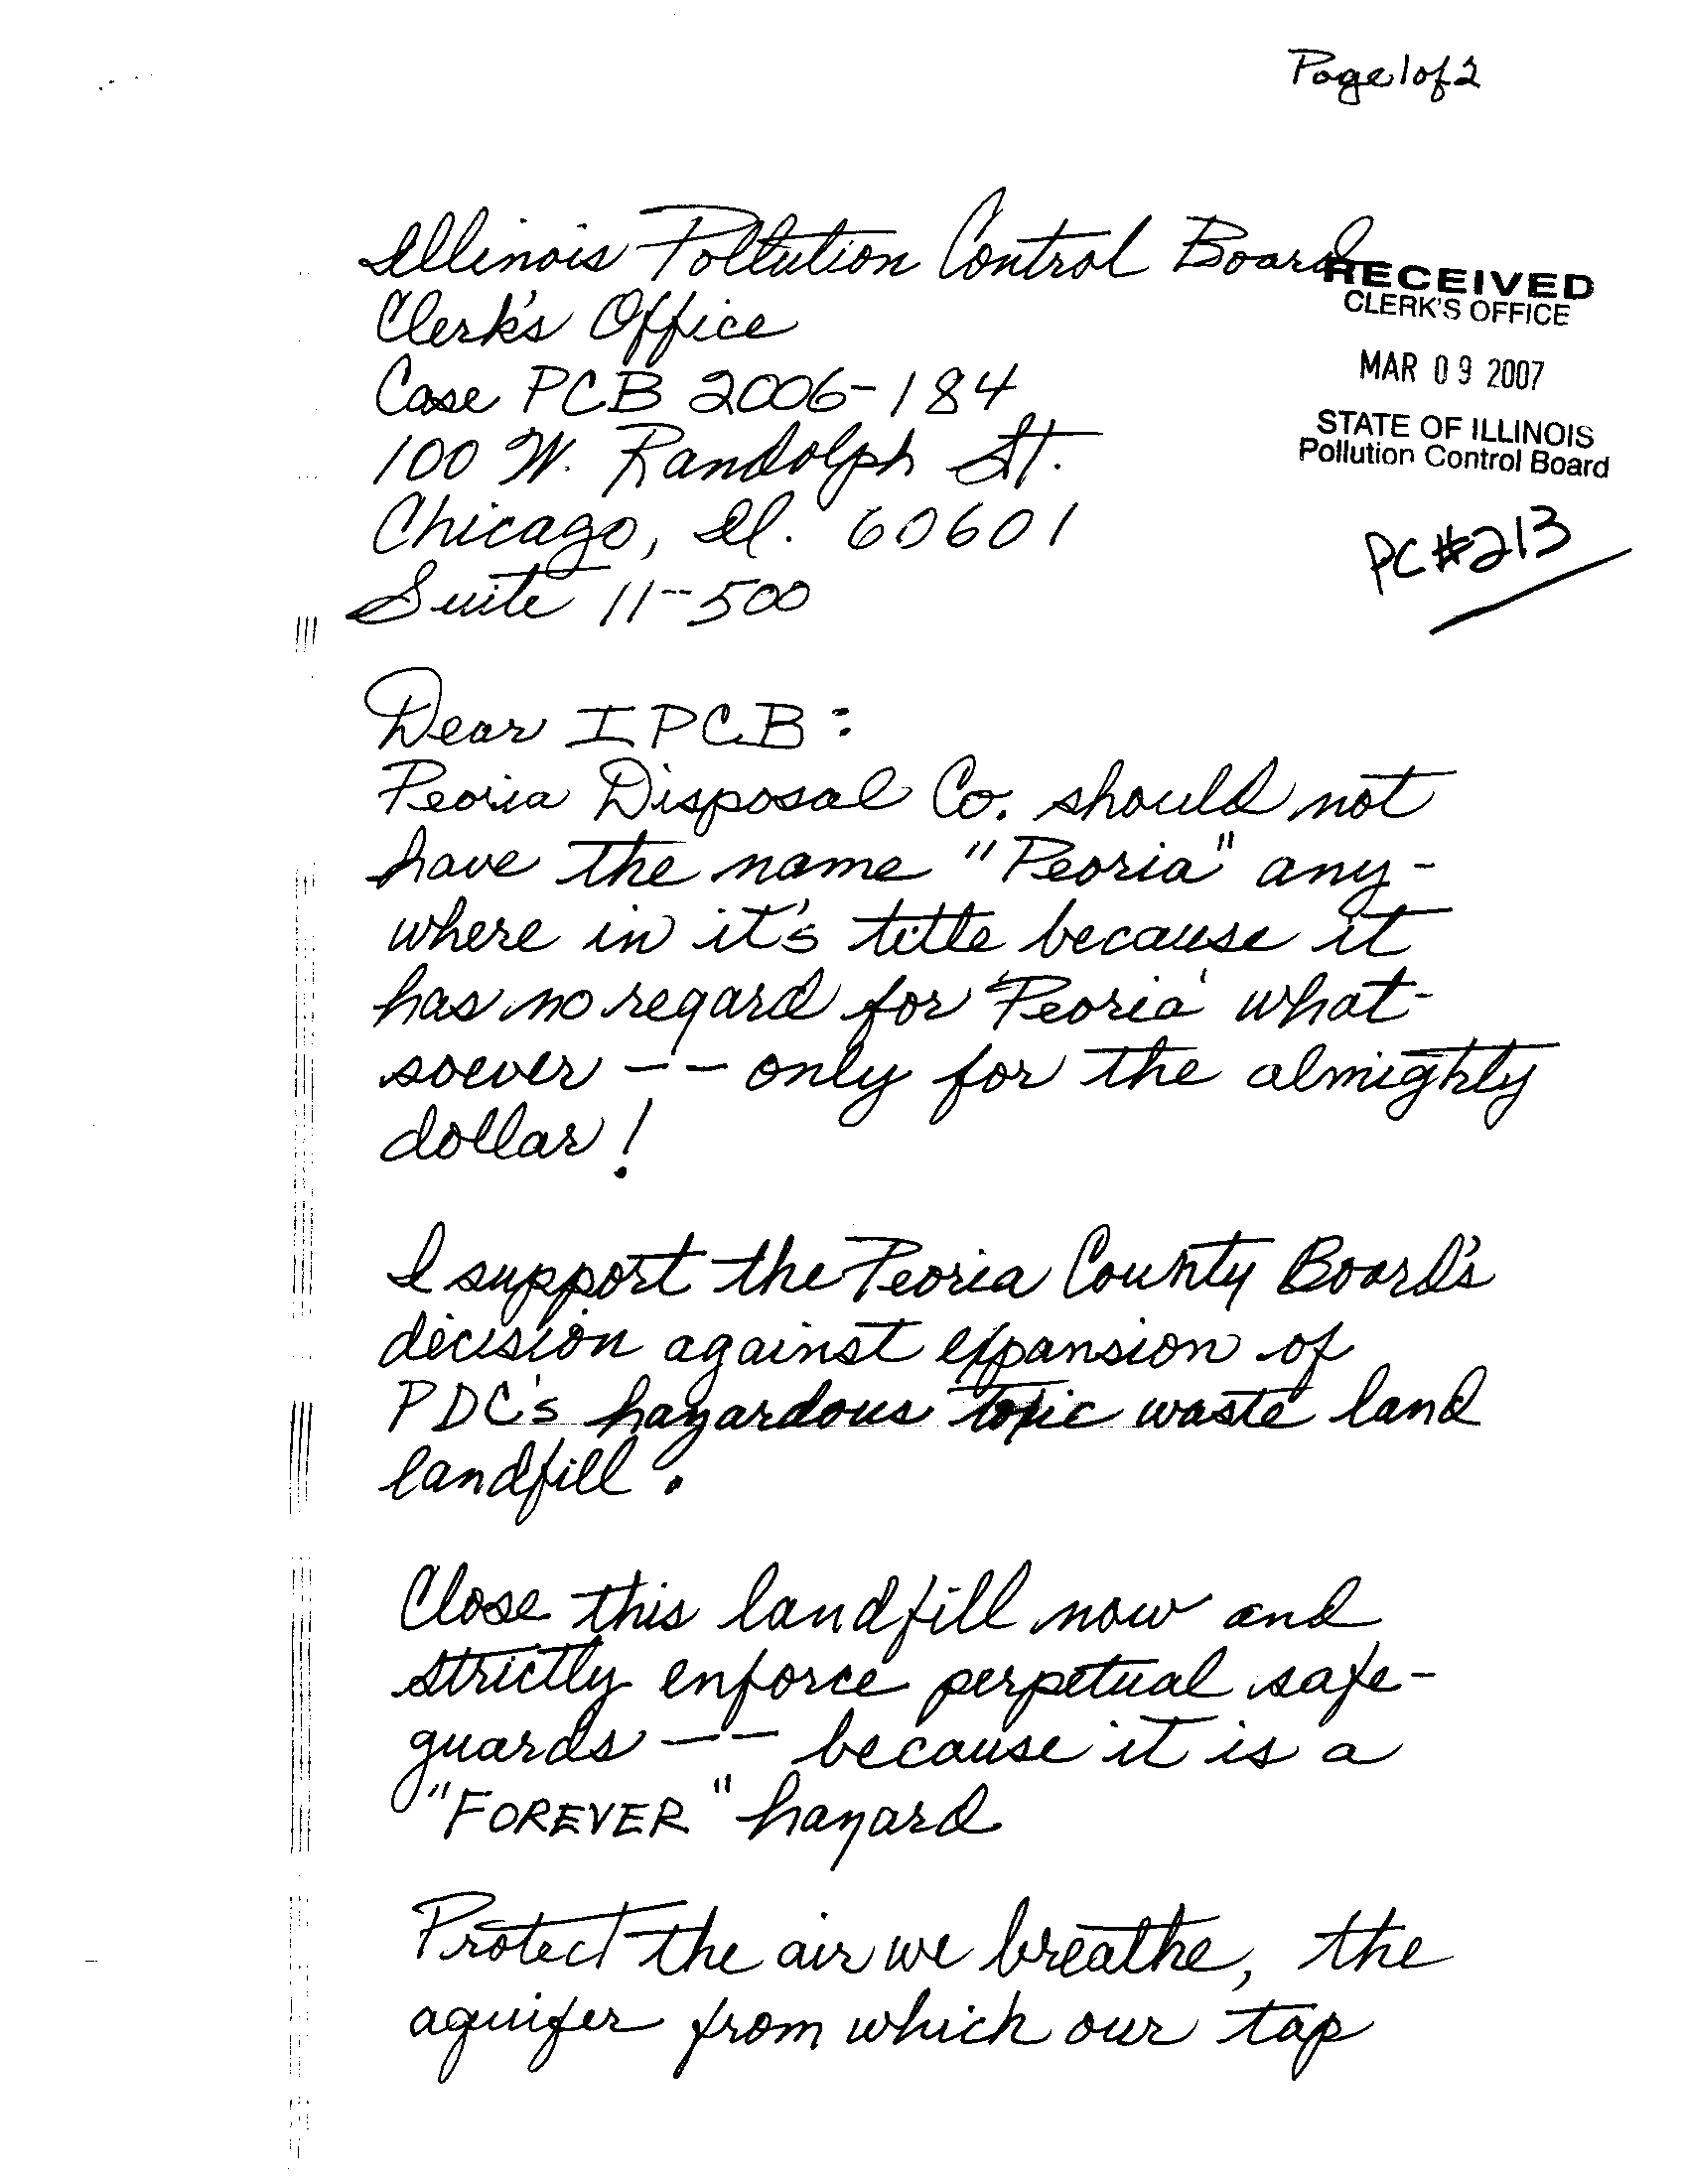 Page 1 of 2
Illinois Pollution Control Board
Clerk's Office
Case PCB 2006-184
100 W. Randolph St.
Chicago, Il. 60601
Suite 11--500
RECEIVED
CLERK'S OFFICE
MAR 09 2007
STATE OF ILLINOIS
Pollution Control Board
PC#213
Dear IPCB:
Peoria Disposal Co. should not
have the name "Peoria" any-
where in it's title because it
has no regard for 'Peoria' what-
soever -- only for the almighty
dollar!
I support the Peoria County Board's
decision against expansion of
PDC's hazardous toxic waste land
landfill.
Close this landfill now and
strictly enforce perpetual safe-
guards -- because it is a
"FOREVER" hazard
Protect the air we breathe, the
aquifer from which our tap